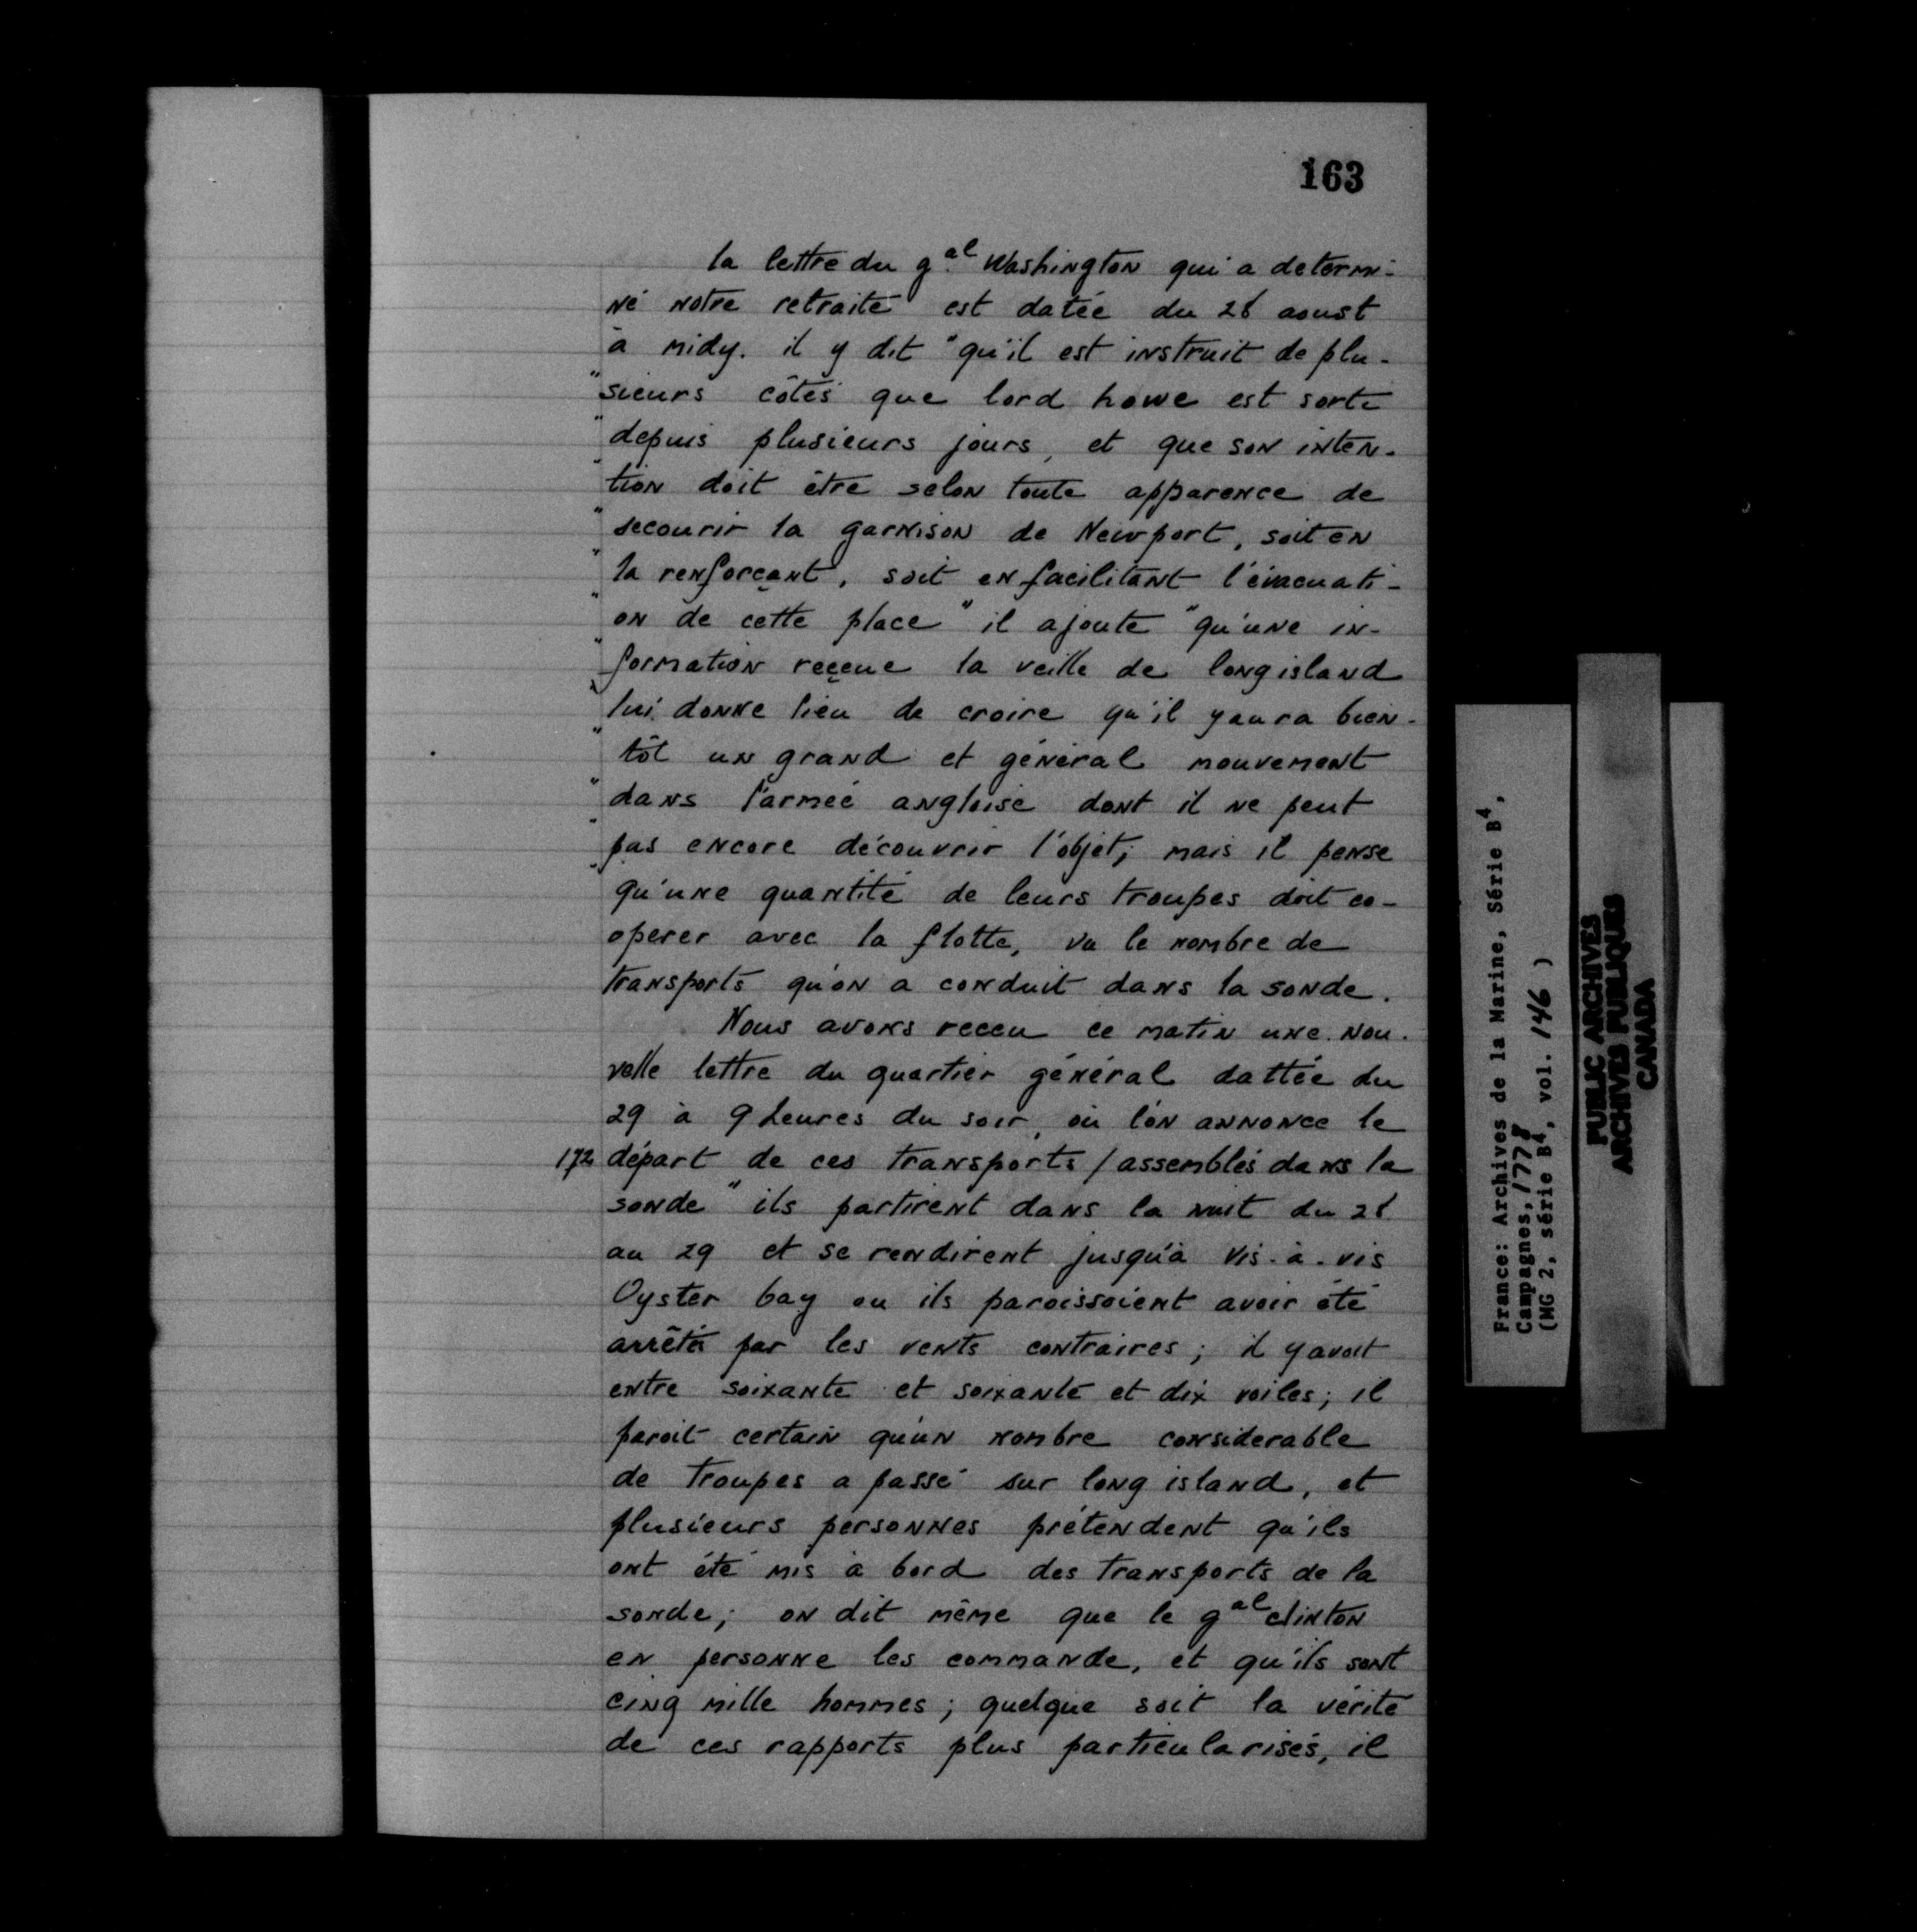 163
la lettre du g.al Washington qui a determi-
né notre retraite est datée du 28 aoust
à midy. il y dit "qu'il est instruit de plu-
"sieurs côtés que lord howe est sorti
"depuis plusieurs jours, et que son inten-
"tion doit être selon toute apparence de
"secourir la garnison de Newport, soit en
"la renforçant, soit en facilitant l'évacuati-
"on de cette place" il ajoute "qu'une in-
"formation reçeue la veille de long island
"lui donne lieu de croire qu'il y aura bien-
"tôt un grand et général mouvement
"dans l'armée angloise dont il ne peut
"pas encore découvrir l'objet; mais il pense
"qu'une quantité de leurs troupes doit co-
operer avec la flotte, vu le nombre de
transports qu'on a conduit dans la sonde.
Nous avons receu ce matin une nou-
velle lettre du quartier général dattée du
29 à 9 heures du soir, où l'on annonce le
172 départ de ces transports / assemblés dans la
sonde "ils partirent dans la nuit du 28
au 29 et se rendirent jusqu'à vis-à-vis
Oyster bay ou ils paroissoient avoir été
arrêtés par les vents contraires; il y avoit
entre soixante et soixante et dix voiles; il
paroit certain qu'un nombre considerable
de troupes a passé sur long island, et
plusieurs personnes prétendent qu'ils
ont été mis à bord des transports de la
sonde; on dit même que le gal clinton
en personne les commande, et qu'ils sont
cinq mille hommes; quelque soit la vérité
de ces rapports plus particularisés, il
France: Archives de la Marine, Série B4,
Campagnes, 1778
(MG 2, série B4, vol. 146 )
PUBLIC ARCHIVES
ARCHIVES PUBLIQUES
CANADA